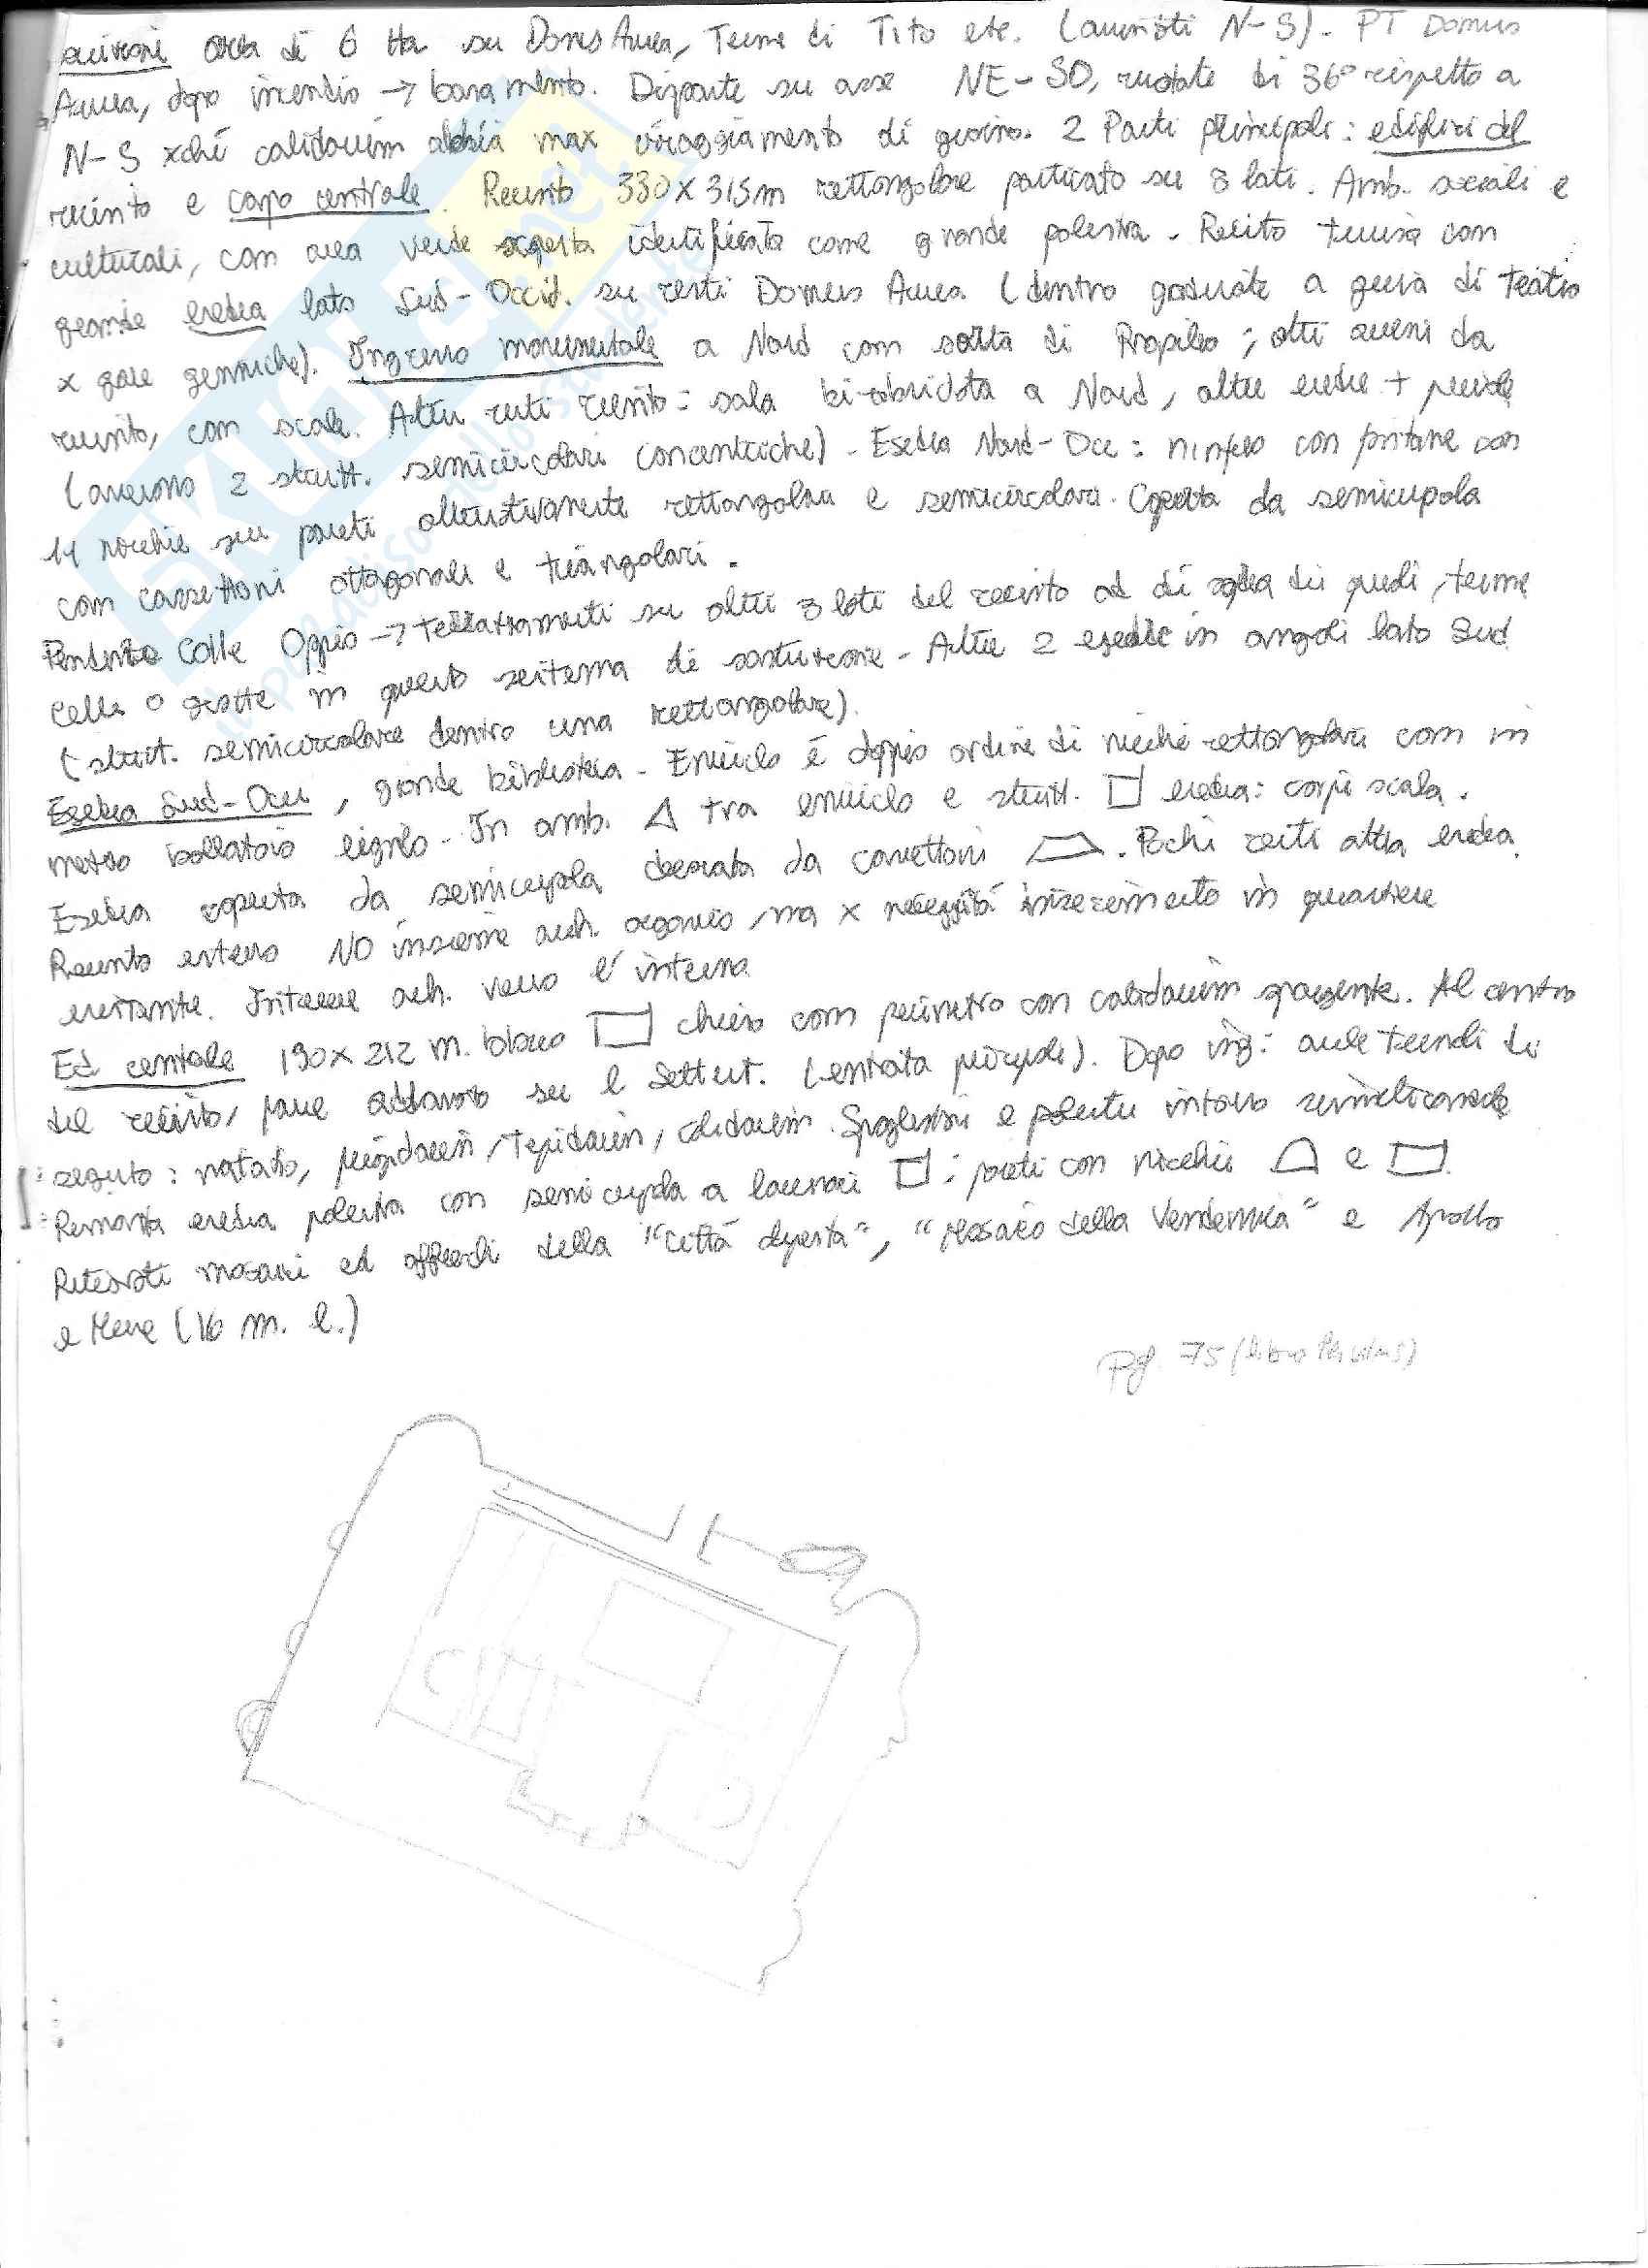 area di 6 Ha su Domus Aurea, Terme di Tito etc. (orientati N-S). PT Domus
Aurea, dopo incendio → basamento. Disposte su asse NE-SO, ruotate di 36° rispetto a
N-S xché calidarium abbia max irraggiamento di giorno. 2 Parti principali: edifici del
recinto e corpo centrale. Recinto 330x315m rettangolare porticato su 3 lati. Amb. sociali e
culturali, con area verde scoperta identificata come grande palestra. Recinto termina con
grande esedra lato Sud-Occid. su resti Domus Aurea (dentro gradinate a guisa di teatro
x gare ginniche). Ingresso monumentale a Nord con sorta di Propileo; altri accessi da
recinto, con scale. Altri resti recinto: sala bi-absidata a Nord, altre esedre + piccole
(avevano 2 strutt. semicircolari concentriche) - Esedra Nord-Occ: ninfeo con fontane con
14 nicchie su pareti alternativamente rettangolari e semicircolari. Coperta da semicupola
con cassettoni ottagonali e triangolari.
Pendenza Colle Oppio → terrazzamenti su altri 3 lati del recinto ad di sotto dei quali, terme
celle o grotte in questo sistema di sostruzione - Altre 2 esedre in angoli lato Sud
(strutt. semicircolare dentro una rettangolare).
Esedra Sud-Occ, grande biblioteca - Emiciclo è doppio ordine di nicchie rettangolari con in
mezzo ballatoio ligneo - In amb. △ tra emiciclo e strutt. □ esedra: corpi scala.
Esedra coperta da semicupola decorata da cassettoni. Pochi resti altra esedra.
Recinto esterno NO insieme arch. organico, ma x necessità inserimento in quartiere
esistente. Interesse arch. verso l'interno
Ed centrale 190x212 m. blocco ▭ chiuso con perimetro con calidarium sporgente. Al centro
del recinto, pare addossato su l settent. (entrata principale). Dopo ing: aule termali di
seguito: natatio, frigidarium, tepidarium, calidarium. Spogliatoi e palestre intorno simmetricamente
Rimasta esedra palestra con semicupola a lacunari □; pareti con nicchie e ▭.
Ritrovati mosaici ed affreschi della "città dipinta", "Mosaico della Vendemmia" e Apollo
e Muse (16 m. l.)
Pg. 75